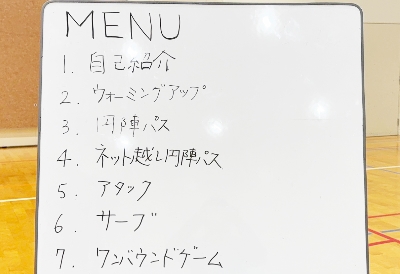 MENU
1. 自己紹介
2. ウォーミングアップ
3. 円陣パス
4. ネット越し円陣パス
5. アタック
6. サーブ
7. ワンバウンドゲーム